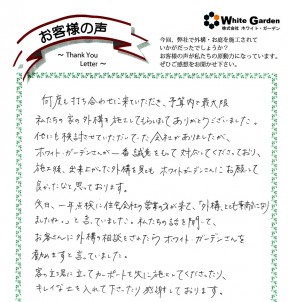 お客様の声
～ Thank You
Letter ～
White Garden
株式会社 ホワイト・ガーデン
今回、弊社で外構・お庭を施工されて
いかがだったでしょうか?
お客様の声が私たちの原動力になっています。
ぜひご感想をお聞かせ下さい。
何度も打ち合わせに来ていただき、予算内で最大限
私たちの家の外構を施工してもらいましてありがとうございました。
他にも検討させていただいていた会社がありましたが、
ホワイト・ガーデンさんが一番誠意をもって対応してくださっており、
施工後、出来上がった外構を見ても ホワイトガーデンにお願いして
良かったなと思っております。
今日、一年点検に住宅会社の営業の方が来て、「外構、とても素敵になり
ましたね。」と言っていました。私たちの話を聞いて、
お客さんに外構の相談をされたら ホワイト・ガーデンさんを
薦めますと言っていました。
客の立場に立ってカーポートも先に施工してくださったり、
キレイな土を入れて下さったり 感謝しております。